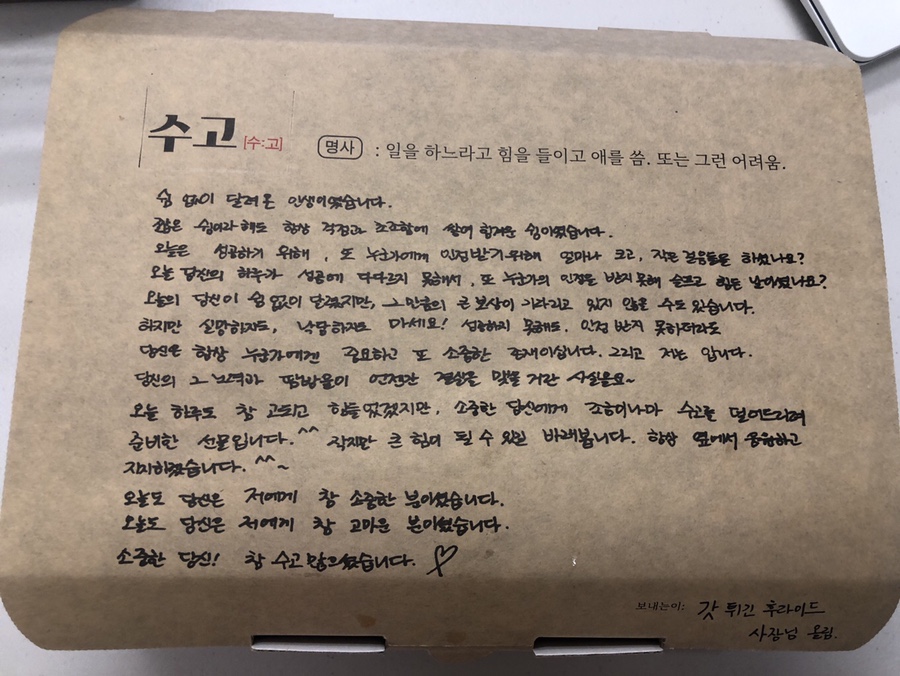 수고 [수:고] 명사 : 일을 하느라고 힘을 들이고 애를 씀. 또는 그런 어려움.
쉼 없이 달려온 인생이었습니다.
짧은 쉼이라 해도 항상 걱정과 초조함에 쌓여 힘겨운 쉼이었습니다.
오늘은 성공하기 위해, 또 누군가에게 인정받기 위해 얼마나 크고, 작은 걸음들을 하셨나요?
오늘 당신의 하루가 성공에 다다르지 못해서, 또 누군가의 인정을 받지 못해 슬프고 힘든 날이셨나요?
오늘의 당신이 쉼 없이 달렸지만, 그만큼의 큰 보상이 기다리고 있지 않을 수도 있습니다.
하지만 실망하지도, 낙담하지도 마세요! 성공하지 못해도. 인정 받지 못하더라도
당신은 항상 누군가에겐 중요하고 또 소중한 존재이십니다. 그리고 저는 압니다.
당신의 그 노력과 땀방울이 언젠간 결실을 맺을 거란 사실을요~
오늘 하루도 참 고되고 힘들었겠지만, 소중한 당신에게 조금이나마 수고를 덜어드리려
준비한 선물입니다.^^ 작지만 큰 힘이 될 수 있길 바래봅니다. 항상 옆에서 응원하고
지지하겠습니다. ^^~
오늘도 당신은 저에게 참 소중한 분이셨습니다.
오늘도 당신은 저에게 참 고마운 분이셨습니다.
소중한 당신! 참 수고 많으셨습니다. ♡
보내는이: 갓 튀긴 후라이드
사장님 올림.